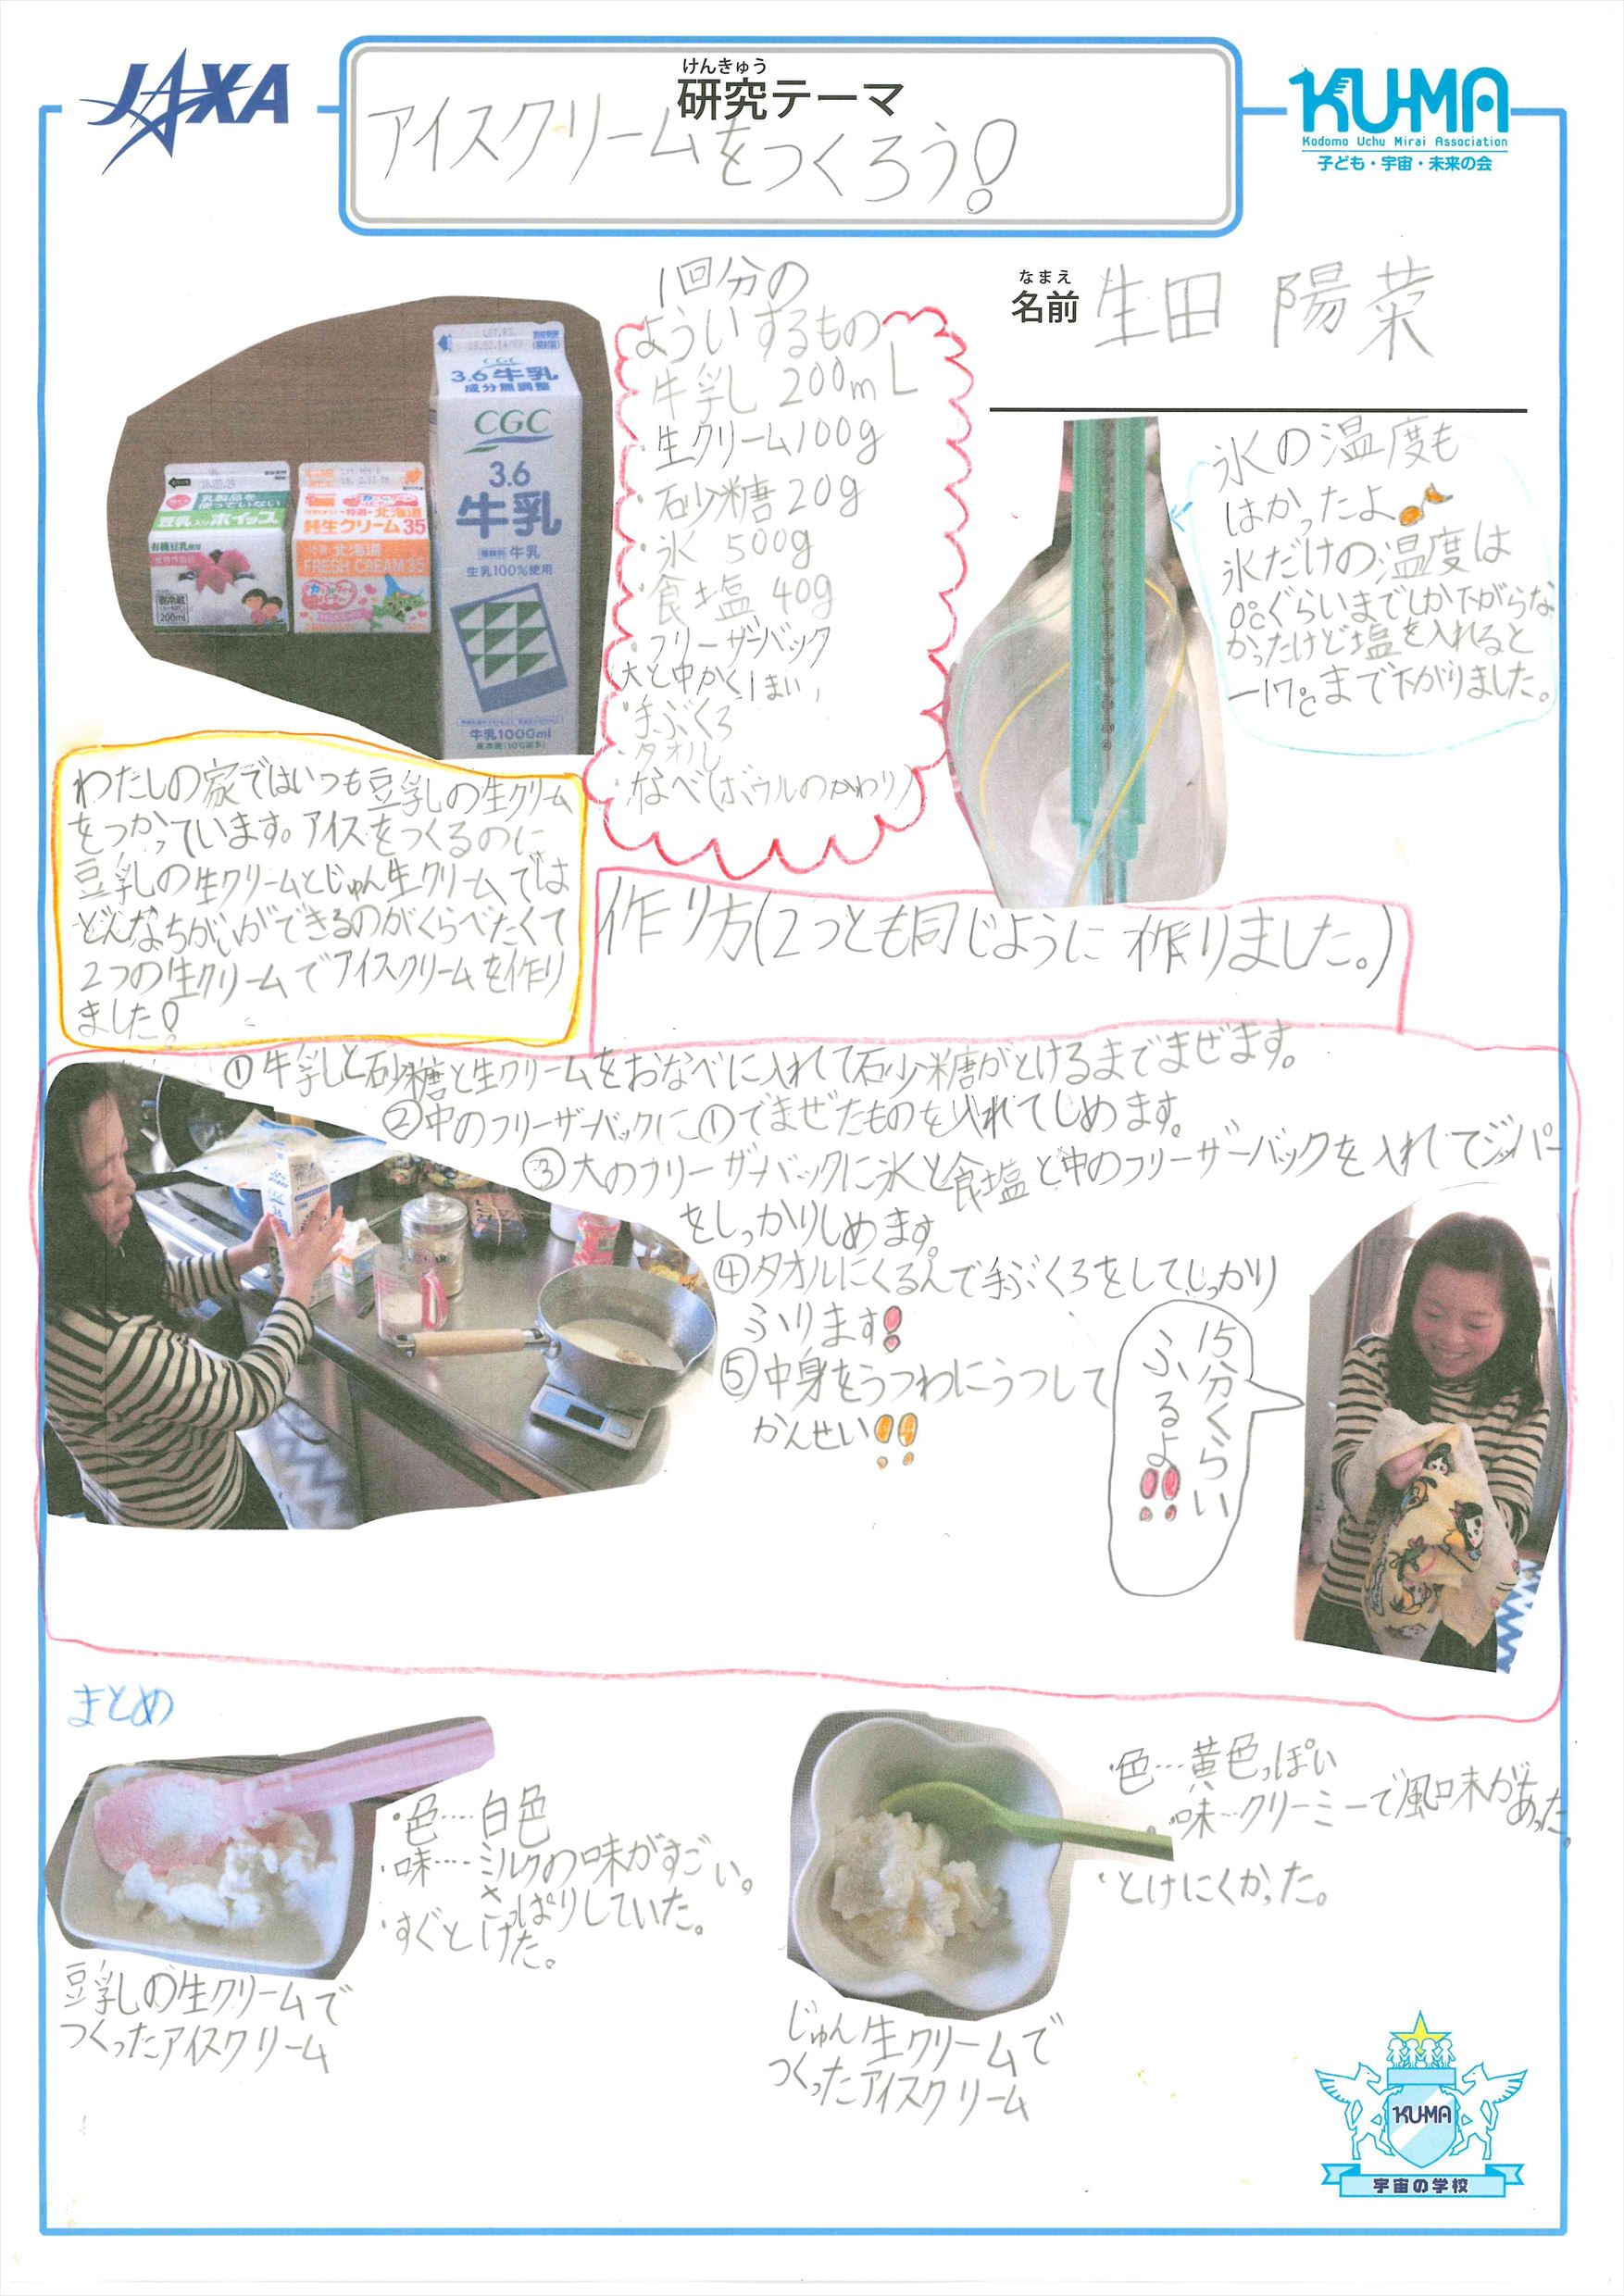 JAXA
けんきゅう
研究テーマ
アイスクリームをつくろう!
KUMA
Kodomo Uchu Mirai Association
子ども・宇宙・未来の会
なまえ
名前 生田 陽菜
1回分の
よういするもの
・牛乳 200mL
・生クリーム100g
・砂糖20g
・氷 500g
・食塩 40g
・フリーザーバック
(大と中かく1まい)
・手ぶくろ
・タオル
・なべ(ボウルのかわり)
3.6牛乳
成分無調整
CGC
3.6
牛乳
種類別 牛乳
生乳100%使用
牛乳1000ml
乳製品を
使っていない
豆乳入りホイップ
有機豆乳使用
要冷蔵
200ml
特選・北海道
純生クリーム35
特選 北海道
FRESH CREAM 35
氷の温度も
はかったよ♪
氷だけの温度は
0℃ぐらいまでしか下がらな
かったけど塩を入れると
-17℃まで下がりました。
わたしの家ではいつも豆乳の生クリーム
をつかっています。アイスをつくるのに
豆乳の生クリームとじゅん生クリームでは
どんなちがいができるのがくらべたくて
2つの生クリームでアイスクリームを作り
ました!
作り方(2つとも同じように作りました。)
①牛乳と砂糖と生クリームをおなべに入れて砂糖がとけるまでまぜます。
②中のフリーザーバックに①でまぜたものを入れてしめます。
③大のフリーザーバックに氷と食塩と中のフリーザーバックを入れてジッパー
をしっかりしめます。
④タオルにくるんで手ぶくろをしてしっかり
ふります!
⑤中身をうつわにうつして
かんせい!!
15分くらい
ふるよ!!
まとめ
・色…白色
・味…ミルクの味がすごい。
さっぱりしていた。
・すぐとけた。
豆乳の生クリームで
つくったアイスクリーム
・色…黄色っぽい
・味…クリーミーで風味があった。
・とけにくかった。
じゅん生クリームで
つくったアイスクリーム
KUMA
宇宙の学校